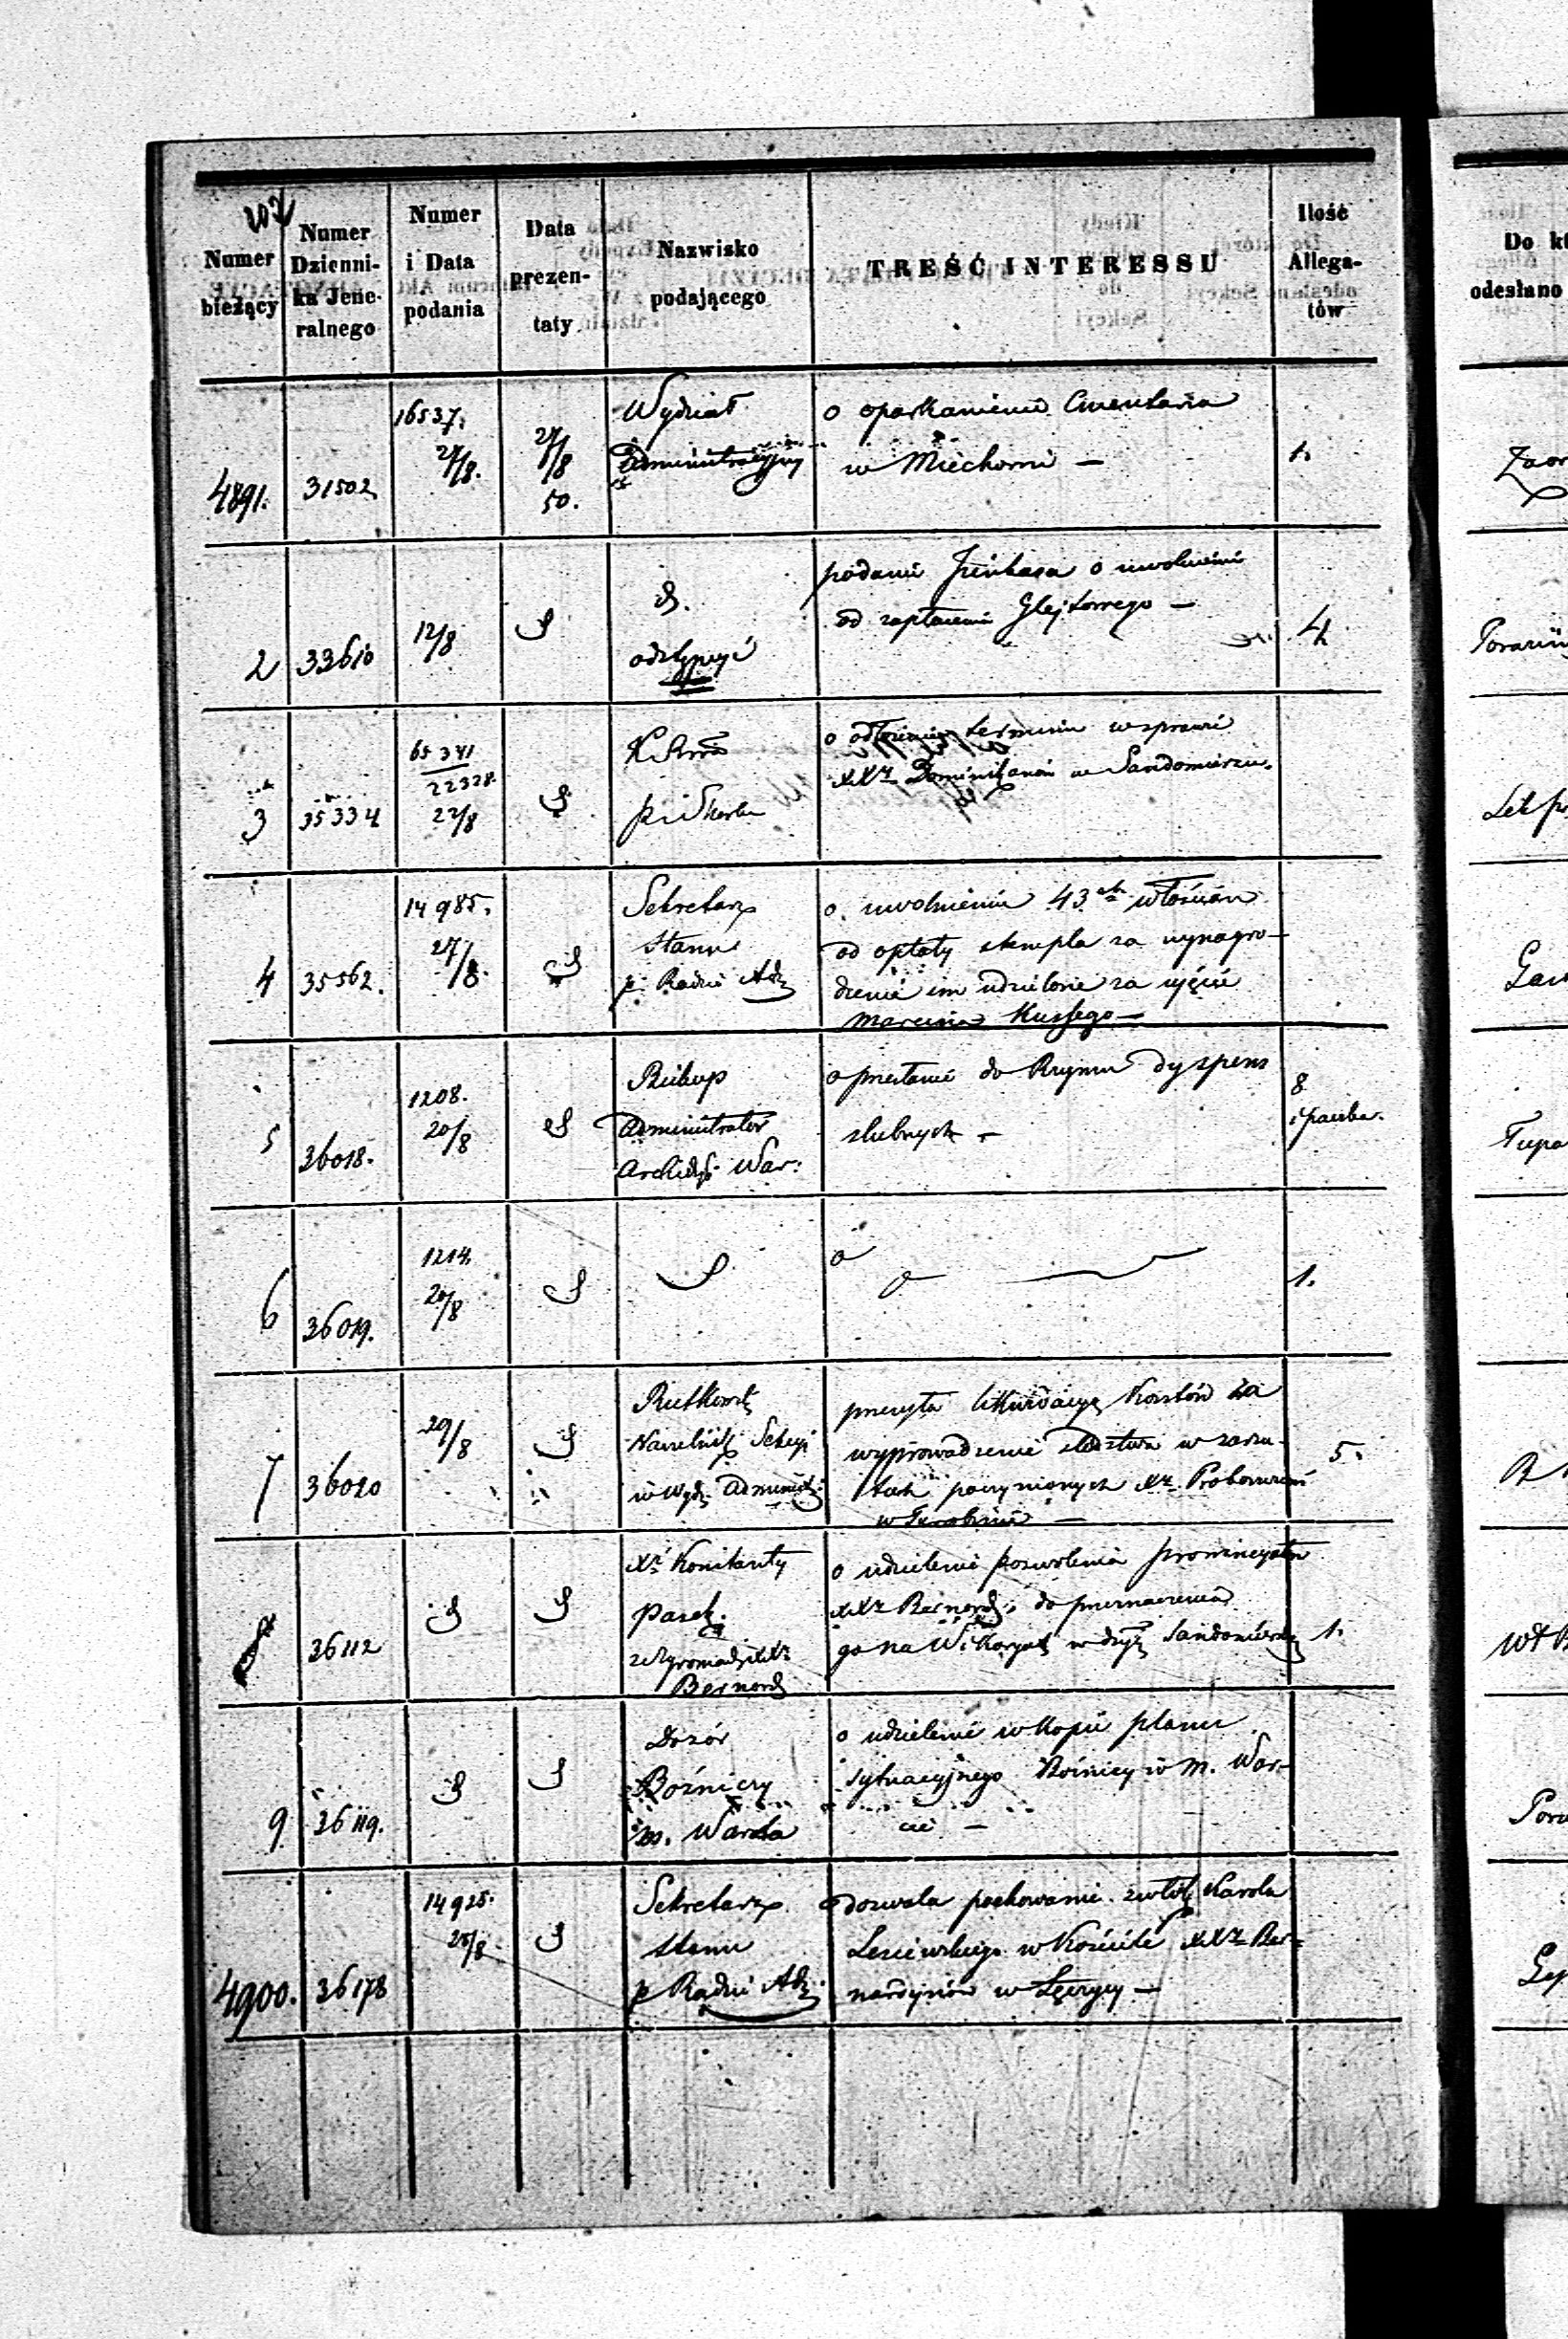 207
Numer bieżący
Numer Dziennika Jeneralnego
Numer i Data podania
Data prezentaty
Nazwisko podającego
TREŚĆ INTERESSU
Ilość Allegatów
4891. 31502 16537. 27/8. 27/8 50.
Wydział
Administracyjny
o oparkanieniu Cmentarza
w Miechowie —
1.
2 33610 12/8
podanie o uwolnieniu
od zapłacenia Glejtowego —
4
3 35334 65341 22328. 22/8
p. i Skarbu
o odłożeniu terminu w sprawie
XXy Dominikanów w Sandomierzu.
4 35562. 14985. 27/8.
Sekretarz
Stanu
p. Radzie Adz
o uwolnieniu 43ch włościan
od opłaty stempla za wynagro-
dzenie im udzielone za ujęcie
Marcina
5 36018. 1208. 20/8
Biskup
Administrator
Archidy. War:
o przesłanie do Rzymu dyspens
ślubnych —
8
i paczka.
6 36019. 1214. 20/8
1.
7 36020 29/8
Rutkowski
Naczelnik Sekcyi
w Wydz. Administr:
przesyła likwidacyą kosztów za
wyprowadzenie śledztwa w zarzu-
tach poczynionych Xy Proboszczowi
5.
8 36112
Xs Konstanty
Pasek
ze Zgromadz. XXy
Bernard
o udzielenie pozwolenia prowincyałowi
XXy Bernard. do przeznaczenia
go na Wikaryat w dyz Sandomierskiej
1.
9 36119.
Dozór
Bożniczy
m. Warta
o udzielenie w kopii planu
sytuacyjnego Bożnicy w m. War-
cie —
4900. 36178 14925. 28/8
Sekretarz
Stanu
p Radzie Adz.
dozwala pochowanie zwłok Karola
w Kościele XXy Ber-
nardynów w Łęczycy —
Do kt
odesłano